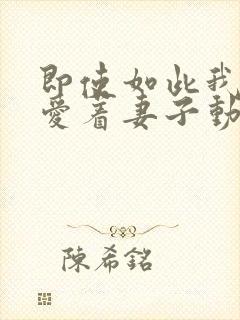 即使如此我
愛着妻子動
陳希銘